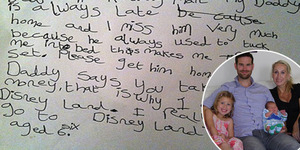 is always late be cause
home and I miss him very much
because he always used to tuck
me into bed this makes me
set. Please get him home
Daddy says you tak
money, that is why I
Disney Land. I reall
go to Disney Land
aged six